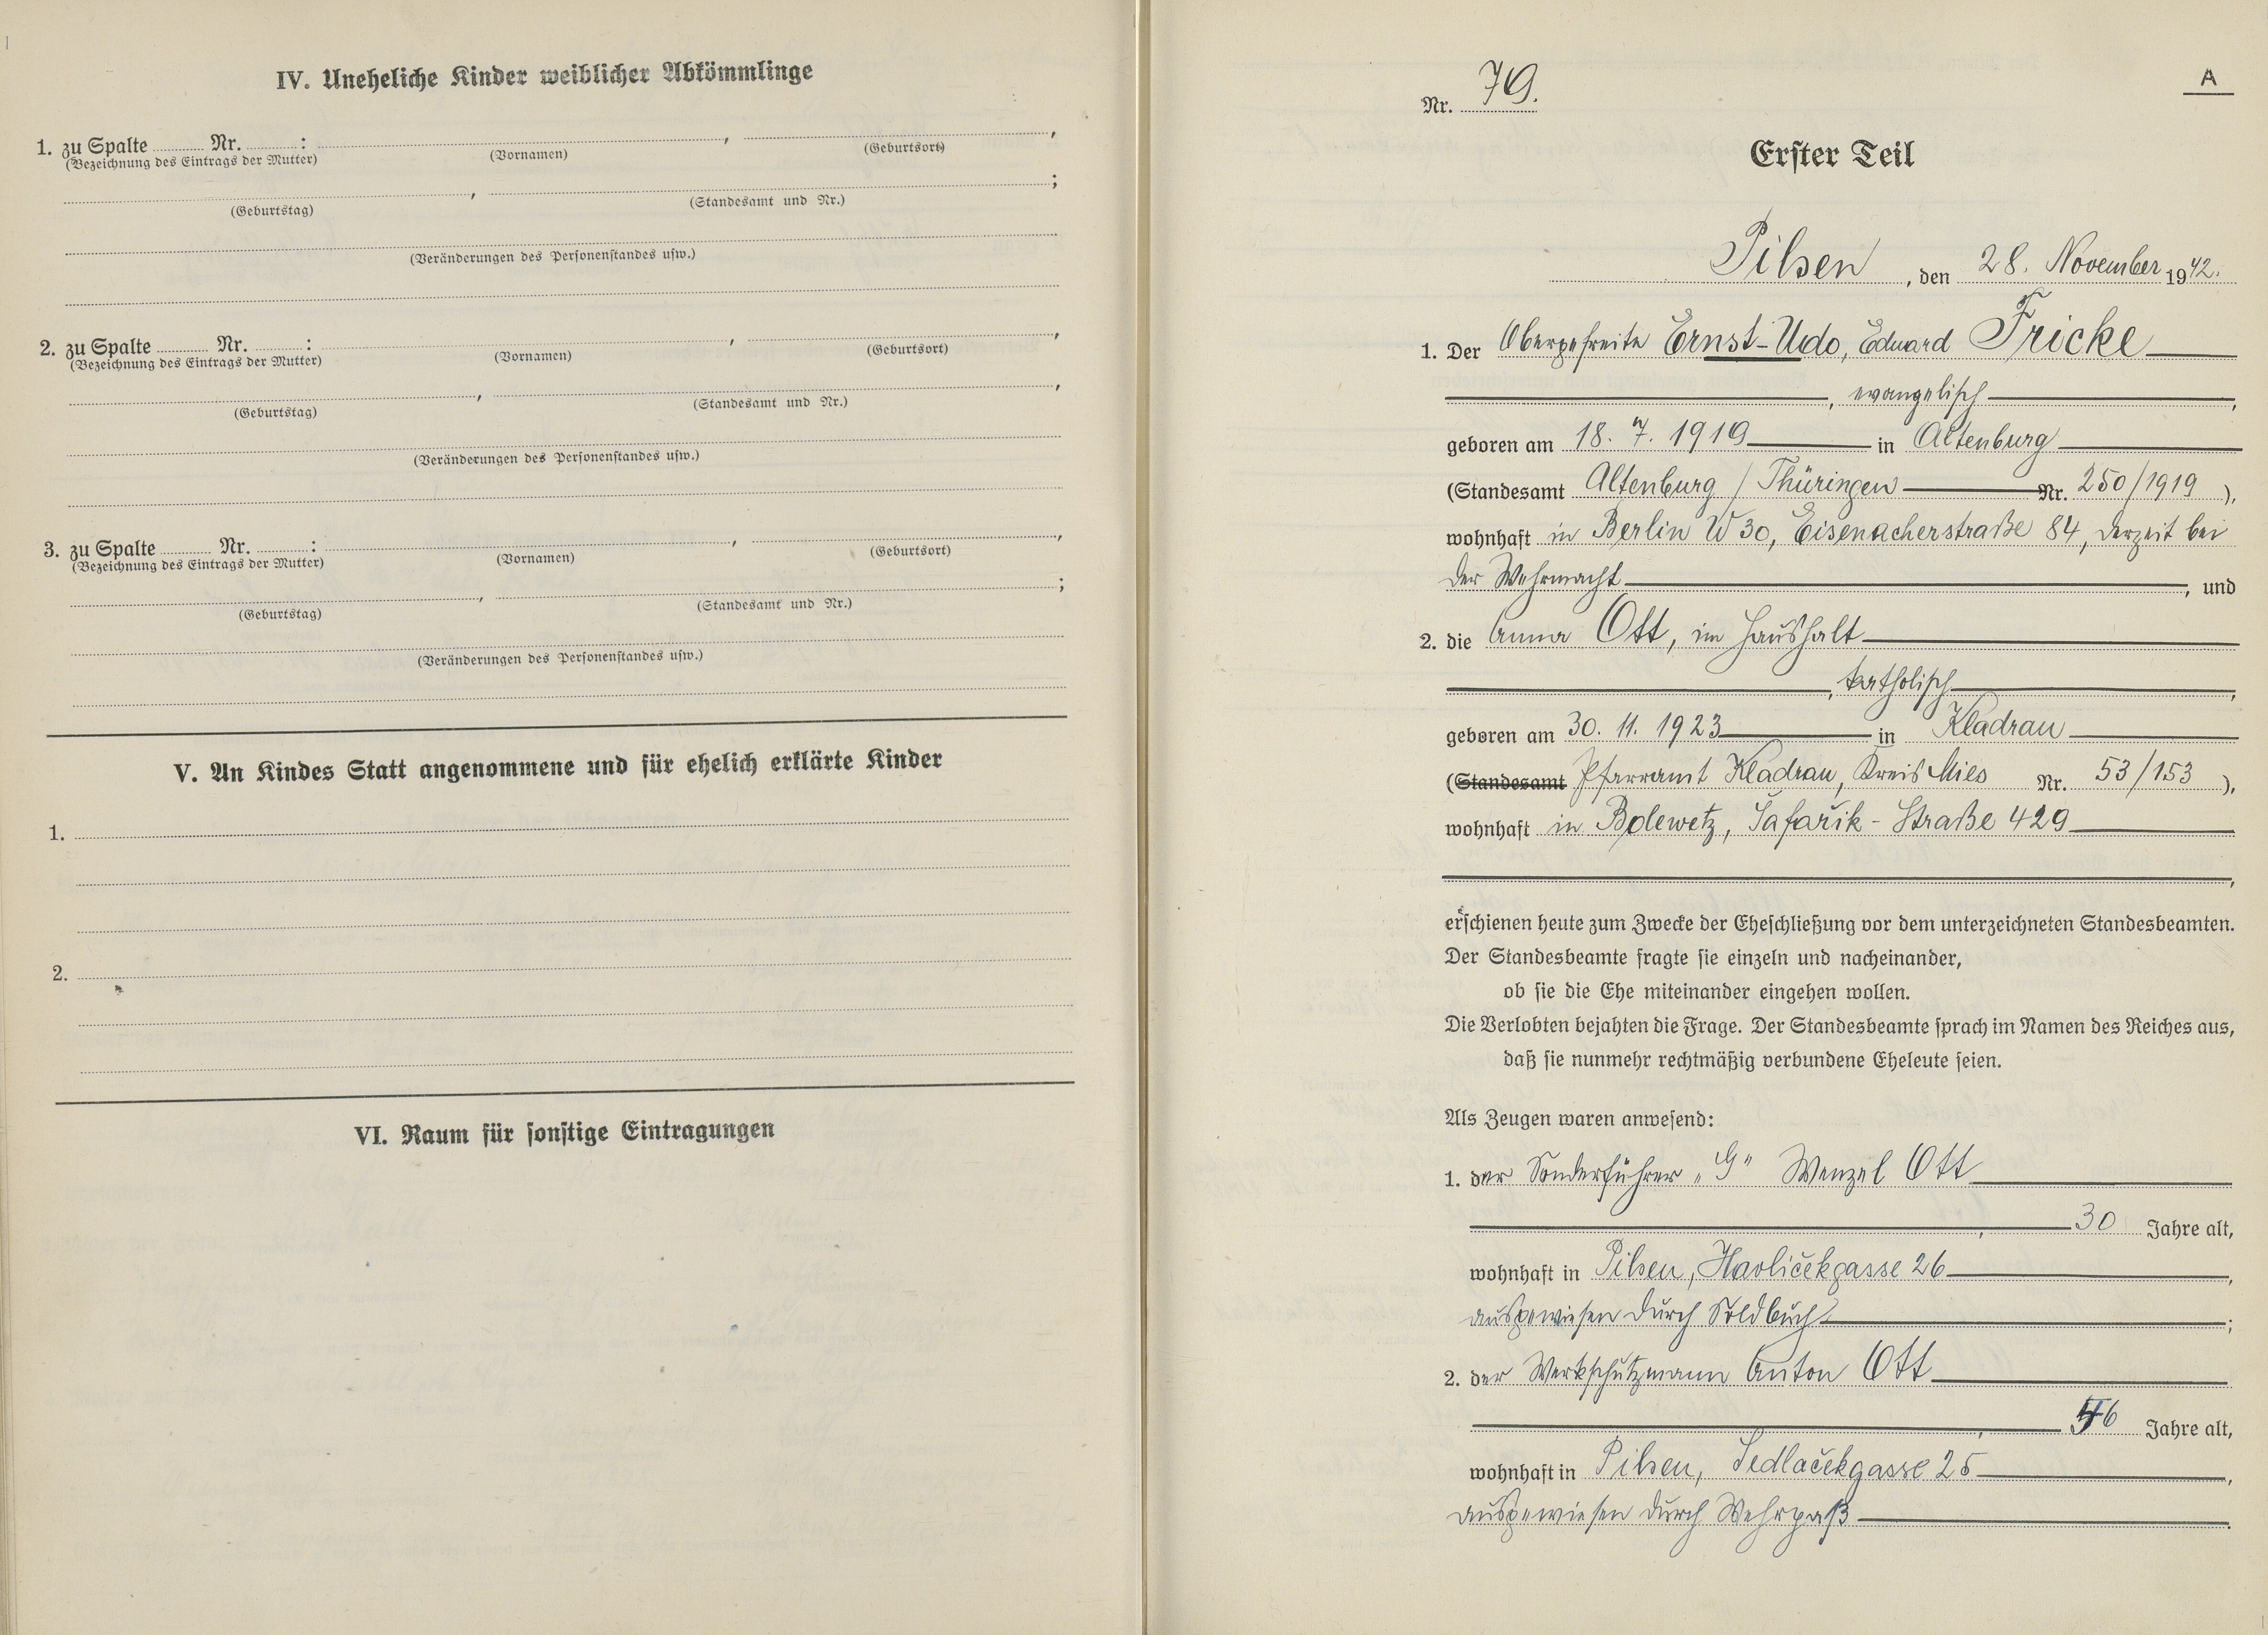 IV. Uneheliche Kinder weiblicher Abkömmlinge
1. zu Spalte ......... Nr. .........: ........., .........,
(Bezeichnung des Eintrags der Mutter) (Vornamen) (Geburtsort)
........., .........;
(Geburtstag) (Standesamt und Nr.)
(Veränderungen des Personenstandes usw.)
2. zu Spalte ......... Nr. .........: ........., .........,
(Bezeichnung des Eintrags der Mutter) (Vornamen) (Geburtsort)
........., .........,
(Geburtstag) (Standesamt und Nr.)
(Veränderungen des Personenstandes usw.)
3. zu Spalte ......... Nr. .........: ........., .........,
(Bezeichnung des Eintrags der Mutter) (Vornamen) (Geburtsort)
........., .........;
(Geburtstag) (Standesamt und Nr.)
(Veränderungen des Personenstandes usw.)
V. An Kindes Statt angenommene und für ehelich erklärte Kinder
1.
2.
VI. Raum für sonstige Eintragungen
A
Nr. 79.
Erster Teil
Pilsen, den 28. November 1942.
1. Der Obergefreite Ernst-Udo, Eduard Fricke
, evangelisch,
geboren am 18. 7. 1919 in Altenburg
(Standesamt Altenburg / Thüringen Nr. 250/1919),
wohnhaft in Berlin W 30, Eisenacherstraße 84, derzeit bei
der Wehrmacht, und
2. die Anna Ott, im Haushalt
, katholisch,
geboren am 30. 11. 1923 in Kladrau
(Standesamt Pfarramt Kladrau, Kreis Mies Nr. 53/153),
wohnhaft in Bolewetz, Šafařik-Straße 429
,
erschienen heute zum Zwecke der Eheschließung vor dem unterzeichneten Standesbeamten.
Der Standesbeamte fragte sie einzeln und nacheinander,
ob sie die Ehe miteinander eingehen wollen.
Die Verlobten bejahten die Frage. Der Standesbeamte sprach im Namen des Reiches aus,
daß sie nunmehr rechtmäßig verbundene Eheleute seien.
Als Zeugen waren anwesend:
1. der Sonderführer „G" Wenzel Ott
, 30 Jahre alt,
wohnhaft in Pilsen, Havličekgasse 26,
ausgewiesen durch Soldbuch;
2. der Werkschutzmann Anton Ott
, 46 Jahre alt,
wohnhaft in Pilsen, Sedlačekgasse 25,
ausgewiesen durch Wehrpaß.